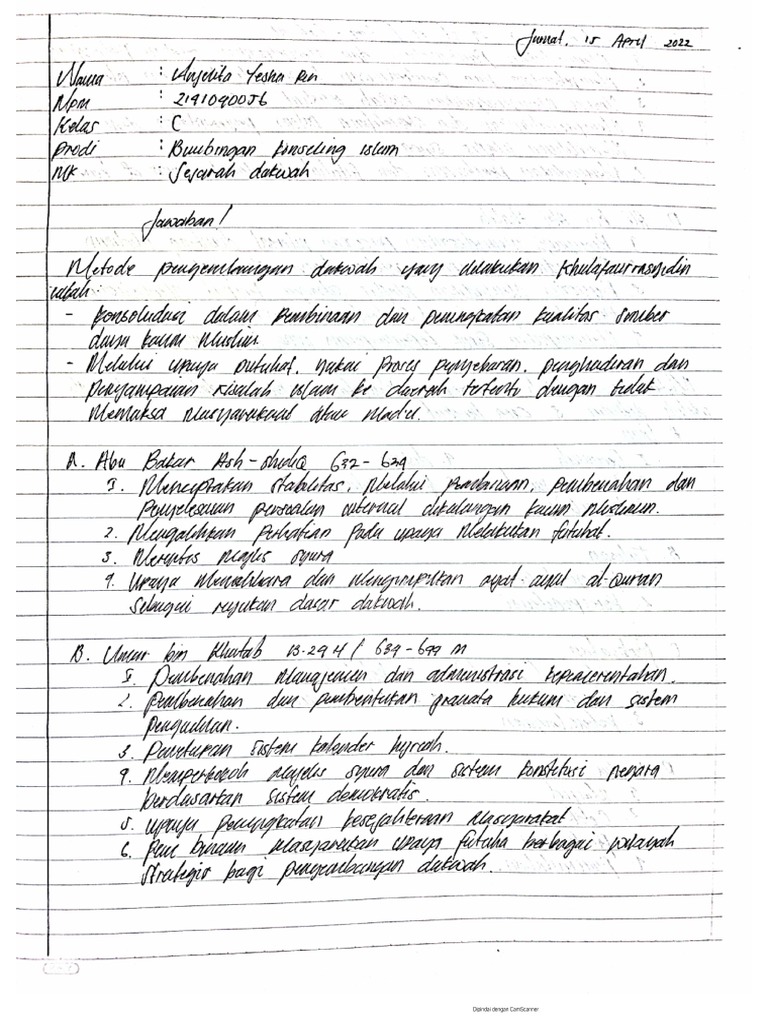 Jumat, 15 April 2022
Nama : Anjelita Yesha
Npm : 2141040056
Kelas : C
Prodi : Bimbingan Konseling Islam
MK : Sejarah dakwah
Jawaban!
Metode pengembangan dakwah yang dilakukan Khulafaurrasyidin
ialah :
- Konsolidasi dalam Pembinaan dan peningkatan kualitas sumber
daya kaum Muslim
- Melalui upaya futuhat, yakni Proses penyebaran, penghadiran dan
penyampaian risalah islam ke daerah tertentu dengan tidak
Memaksa Masyarakat atau Mad'u.
A. Abu Bakar Ash-shidiq 632-634
1. Menciptakan stabilitas, Melalui pembinaan, pembenahan dan
Penyelesaian persoalan internal dikalangan kaum muslimin.
2. Mengalihkan Perhatian Pada upaya Melakukan futuhat.
3. Merintis Majlis syura
4. Upaya Memelihara dan Mengumpulkan ayat-ayat al-Quran
sebagai rujukan dasar dakwah.
B. Umar bin Khatab 13-24 H / 634-644 M
1. Pembenahan Manajemen dan administrasi kepemerintahan.
2. Pembenahan dan pembentukan pranata hukum dan sistem
pengadilan.
3. Penetapan sistem kalender hijriah.
4. Memperkokoh Majelis syura dan sistem konstitusi negara
berdasarkan sistem demokratis.
5. upaya peningkatan kesejahteraan Masyarakat
6. Masyarakat upaya futuha berbagai wilayah
strategis bagi pengembangan dakwah.
Dipindai dengan CamScanner